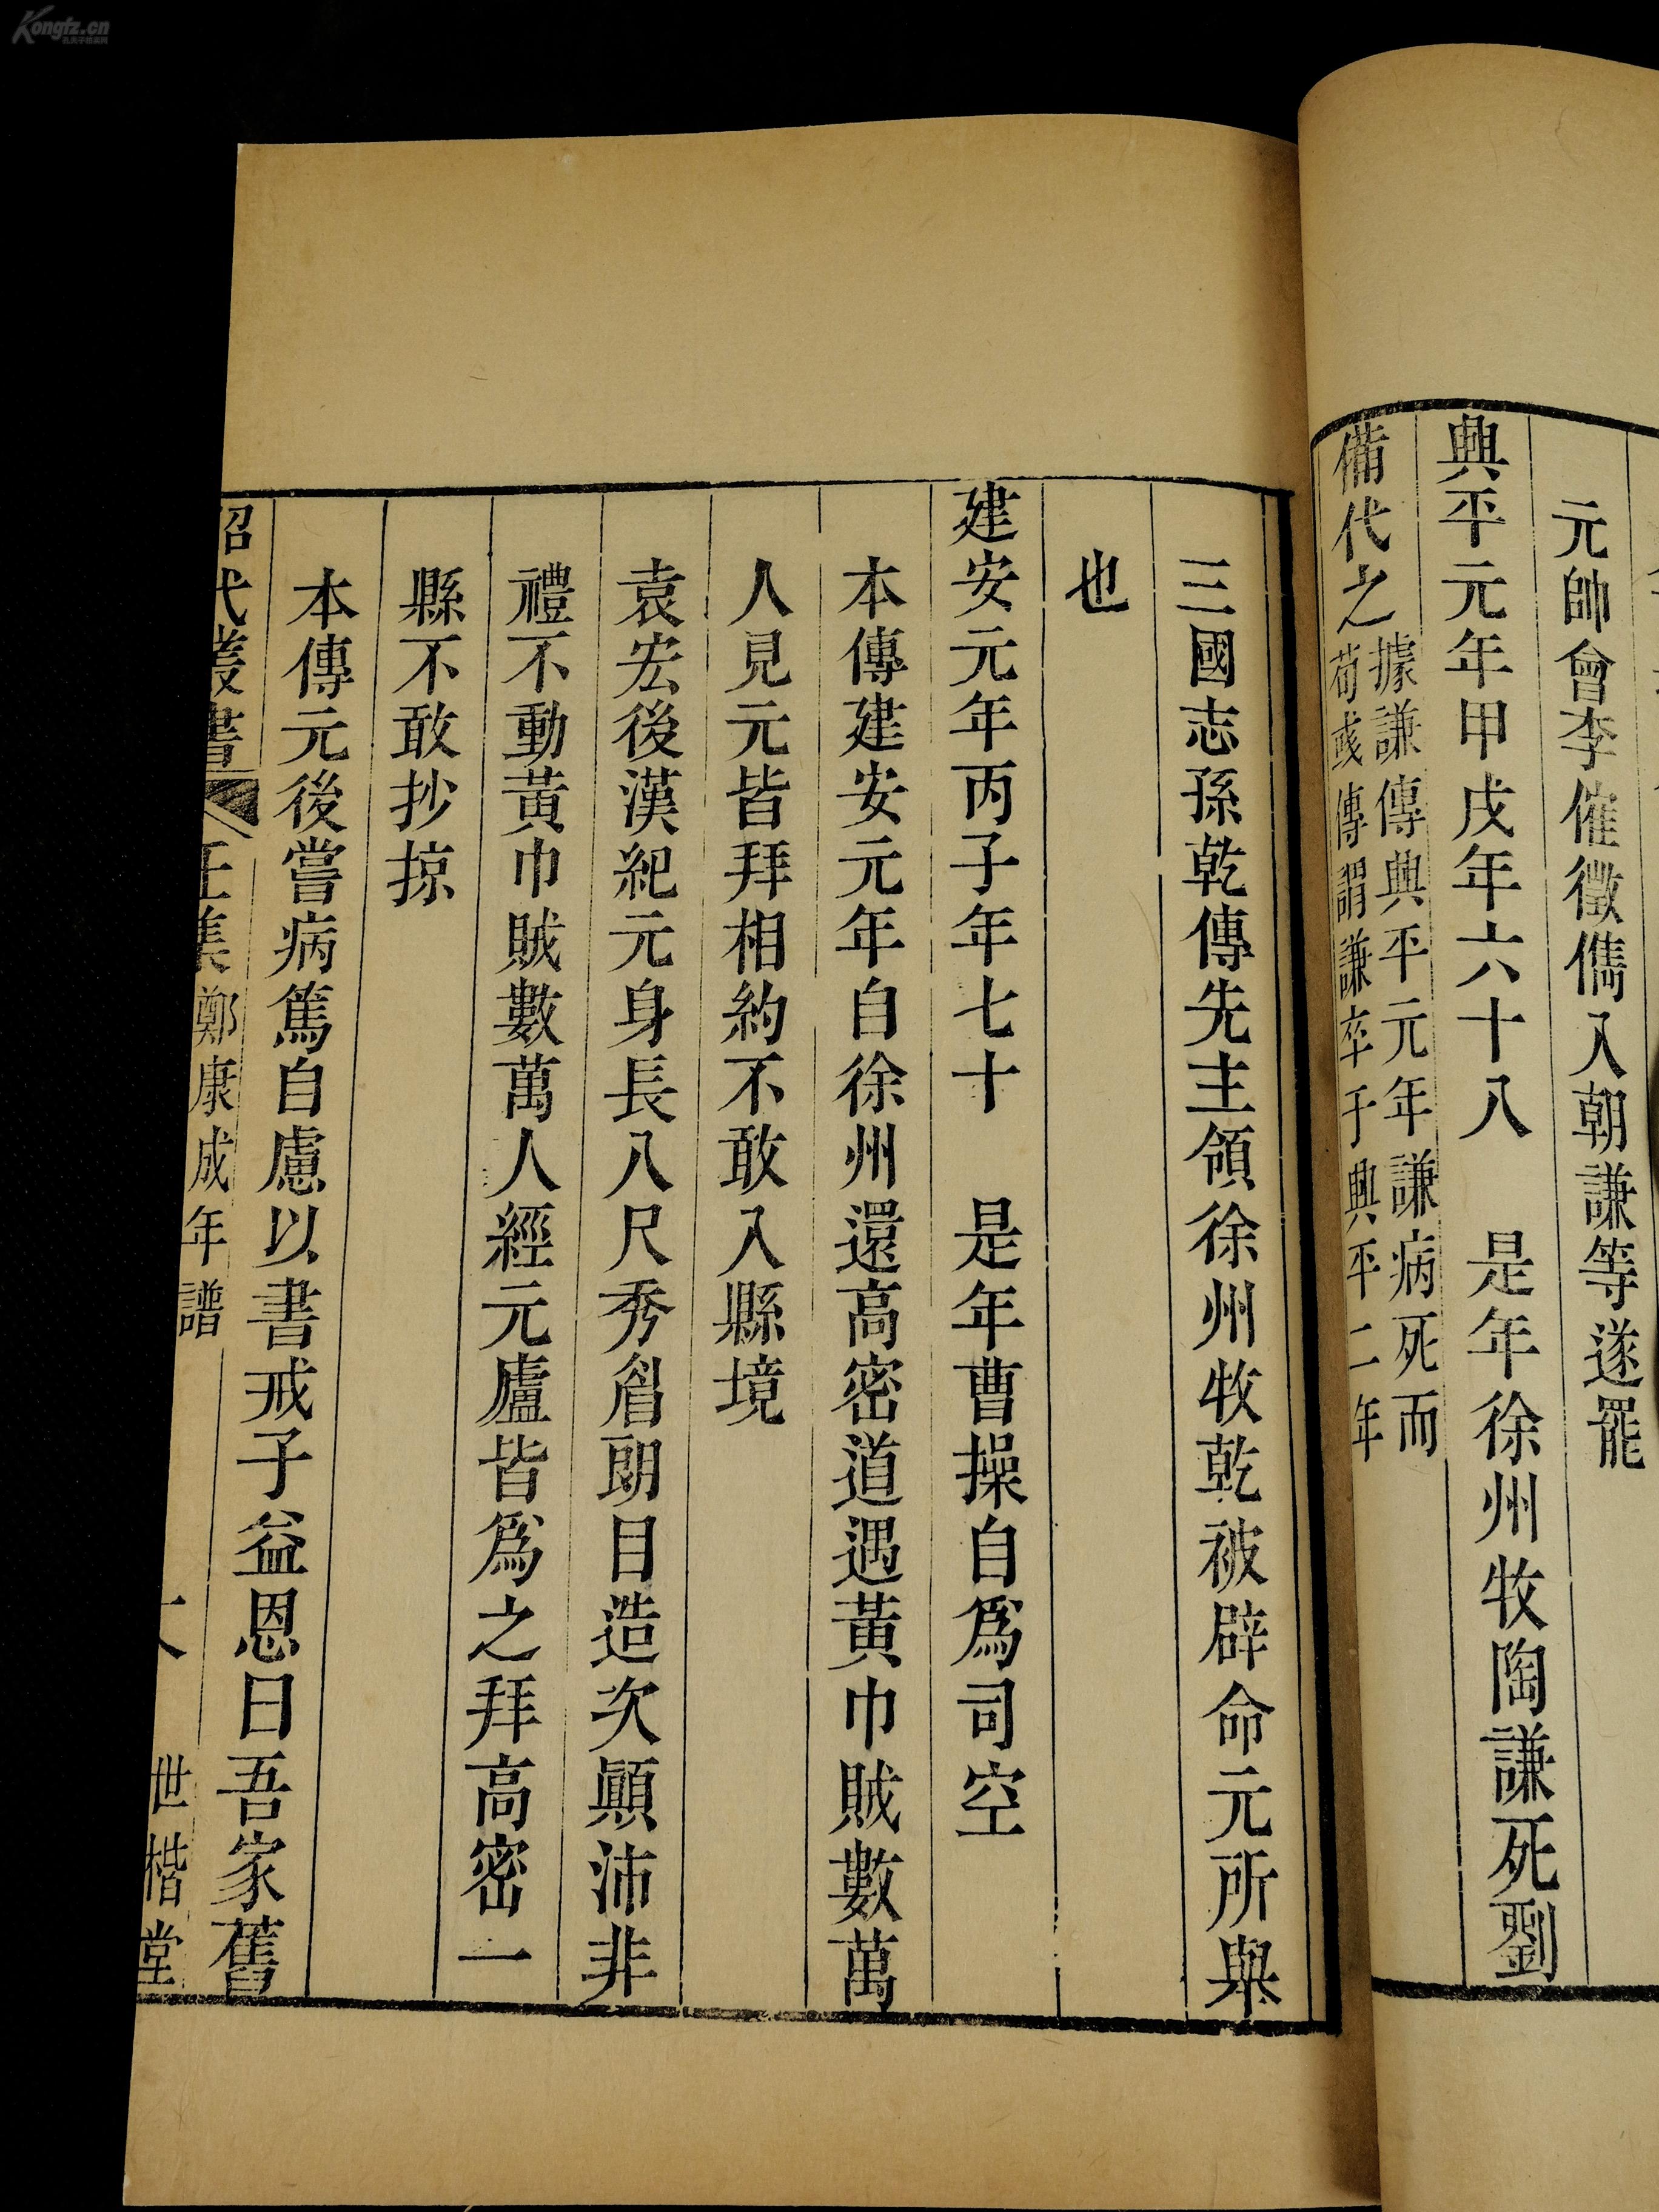 元帥會李傕徵儁入朝謙等遂罷
興平元年甲戌年六十八　是年徐州牧陶謙死劉
備代之據謙傳興平元年謙病死而
荀彧傳謂謙卒于興平二年
三國志孫乾傳先主領徐州牧乾被辟命元所舉
也
建安元年丙子年七十　是年曹操自爲司空
本傳建安元年自徐州還高密道遇黃巾賊數萬
人見元皆拜相約不敢入縣境
袁宏後漢紀元身長八尺秀眉朗目造次顚沛非
禮不動黃巾賊數萬人經元廬皆爲之拜高密一
縣不敢抄掠
本傳元後嘗病篤自慮以書戒子益恩曰吾家舊
昭代叢書　壬集鄭康成年譜　世楷堂
Kongfz.cn